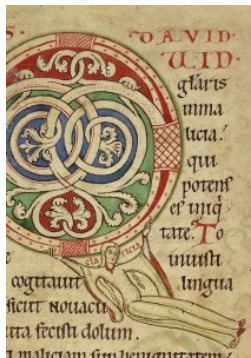 S. DAVID.
UID
gl̃aris
in ma
licia.
qui
potens
es iniq̃
tate. To
cogitauit inuisti
lingua
sicut nouacu
ita fecisti dolum.
maliciam sup̃ benignitatem